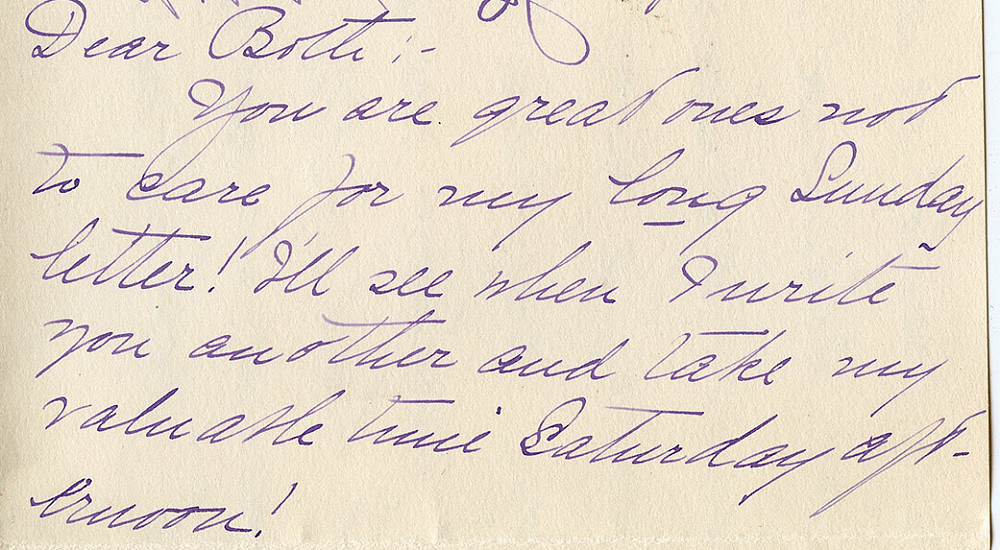 Dear Both :-
You are great ones not
to care for my long Sunday
letter! I'll see when I write
you another and take my
valuable time Saturday aft-
ernoon!